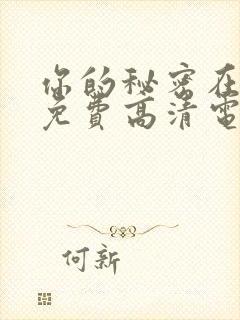 你的秘密在
免費高清電
何新